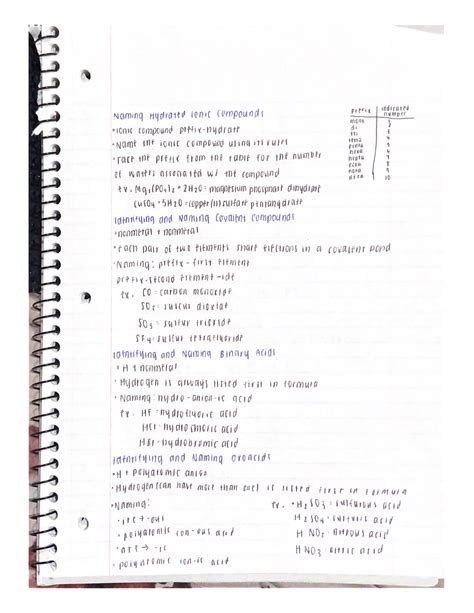 Naming Hydrated Ionic Compounds
• ionic compound prefix-hydrate
• Name the ionic compound using its rules
• Face the prefix from the table for the number
of waters associated w/ the compound
ex. Mg3(PO4)2 • 2H2O = magnesium phosphate dihydrate
CuSO4 • 5H2O = copper(II) sulfate pentahydrate
prefix indicated number
mono 1
di 2
tri 3
tetra 4
penta 5
hexa 6
hepta 7
octa 8
nona 9
deca 10
Identifying and Naming Covalent Compounds
• nonmetal + nonmetal
• Each pair of two elements share electrons in a covalent bond
• Naming: prefix - first element
prefix-second element -ide
ex. CO = carbon monoxide
SO2 = sulfur dioxide
SO3 = sulfur trioxide
SF4 = sulfur tetrafluoride
Identifying and Naming Binary Acids
• H + nonmetal
• Hydrogen is always listed first in formula
• Naming: hydro-anion-ic acid
ex. HF = hydrofluoric acid
HCl = hydrochloric acid
HBr = hydrobromic acid
Identifying and Naming Oxoacids
• H + polyatomic anion
• Hydrogen (can have more than one) is listed first in formula
• Naming:
• ite → ous
• polyatomic ion-ous acid
• ate → -ic
• polyatomic ion-ic acid
ex. • H2SO3 = sulfurous acid
H2SO4 = sulfuric acid
HNO2 = nitrous acid
HNO3 = nitric acid